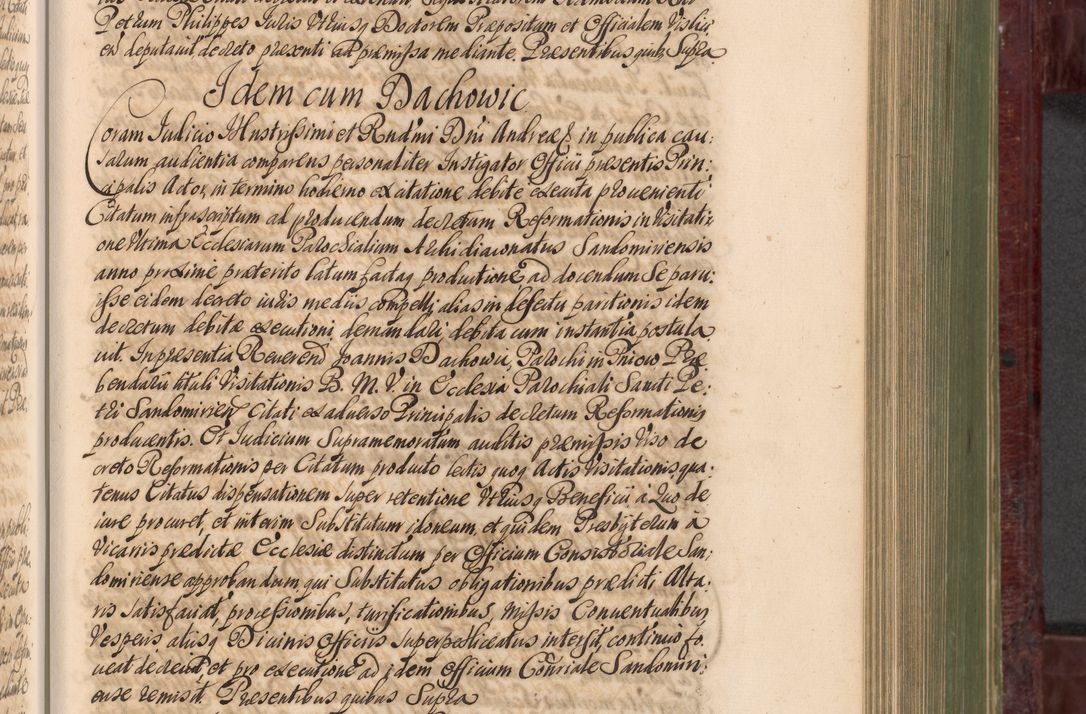 Petrum Philippes Juris Utriusq Doctorem Præpositum et Officialem Vislic,
en deputavit decreto præsenti ad præmissa mediante. Præsentibus quib, Supra
Idem cum Dachowic
Coram Judicio Illustrissimi et Rndmi Dni Andreæ &. in publica cau:
sarum audientia comparens personaliter Instigator Officii præsentis Prin:
cipalis Actor, in termino hodierno ex citatione debite executa provenienti
Citatum infrascriptum ad producendum decretum Reformationis, in Visitati:
one Ultima Ecclesiarum Parochialium Archidiaconatus Sandomiriensis
anno proxime præterito latum, factaq productione ad docendum Se paru:
isse eidem decreto iuris mediis compelli, alias in defectu paritionis idem
decretum debitæ executioni demandari, debita cum instantia postula
vit. In præsentia Reverend Joannis Dachowic, Parochi in Pniow Præ
bendarii tituli Visitationis B. M. V in Ecclesia Parochiali Sancti Pe:
tri Sandomirien Citati ex adverso Principalis decretum Reformationis
producentis. Et Judicium Supramemoratum auditis præmissis Viso de
creto Reformationis per Citatum producto lectis quoq Actis Visitationis qua:
tenus Citatus dispensationem super retentione Utriusq Beneficii à Quo de
iure procuret, et interim Substitutum idoneum, et quidem Presbyterum à
Vicariis prædictæ Ecclesiæ distinctum per Officium Consistoriale San:
domiriense approbandum qui Substitutus obligationibus prædicti Alta:
ris satisfaciat, processionibus, turificationibus, Missis Conventualibus
Vesperis aliisq Divinis Officiis superpelliceatus intersit, continuo fo:
veat decrevit, et pro executione ad idem Officium Conriale Sandomiri:
ense remisit. Præsentibus quibus Supra